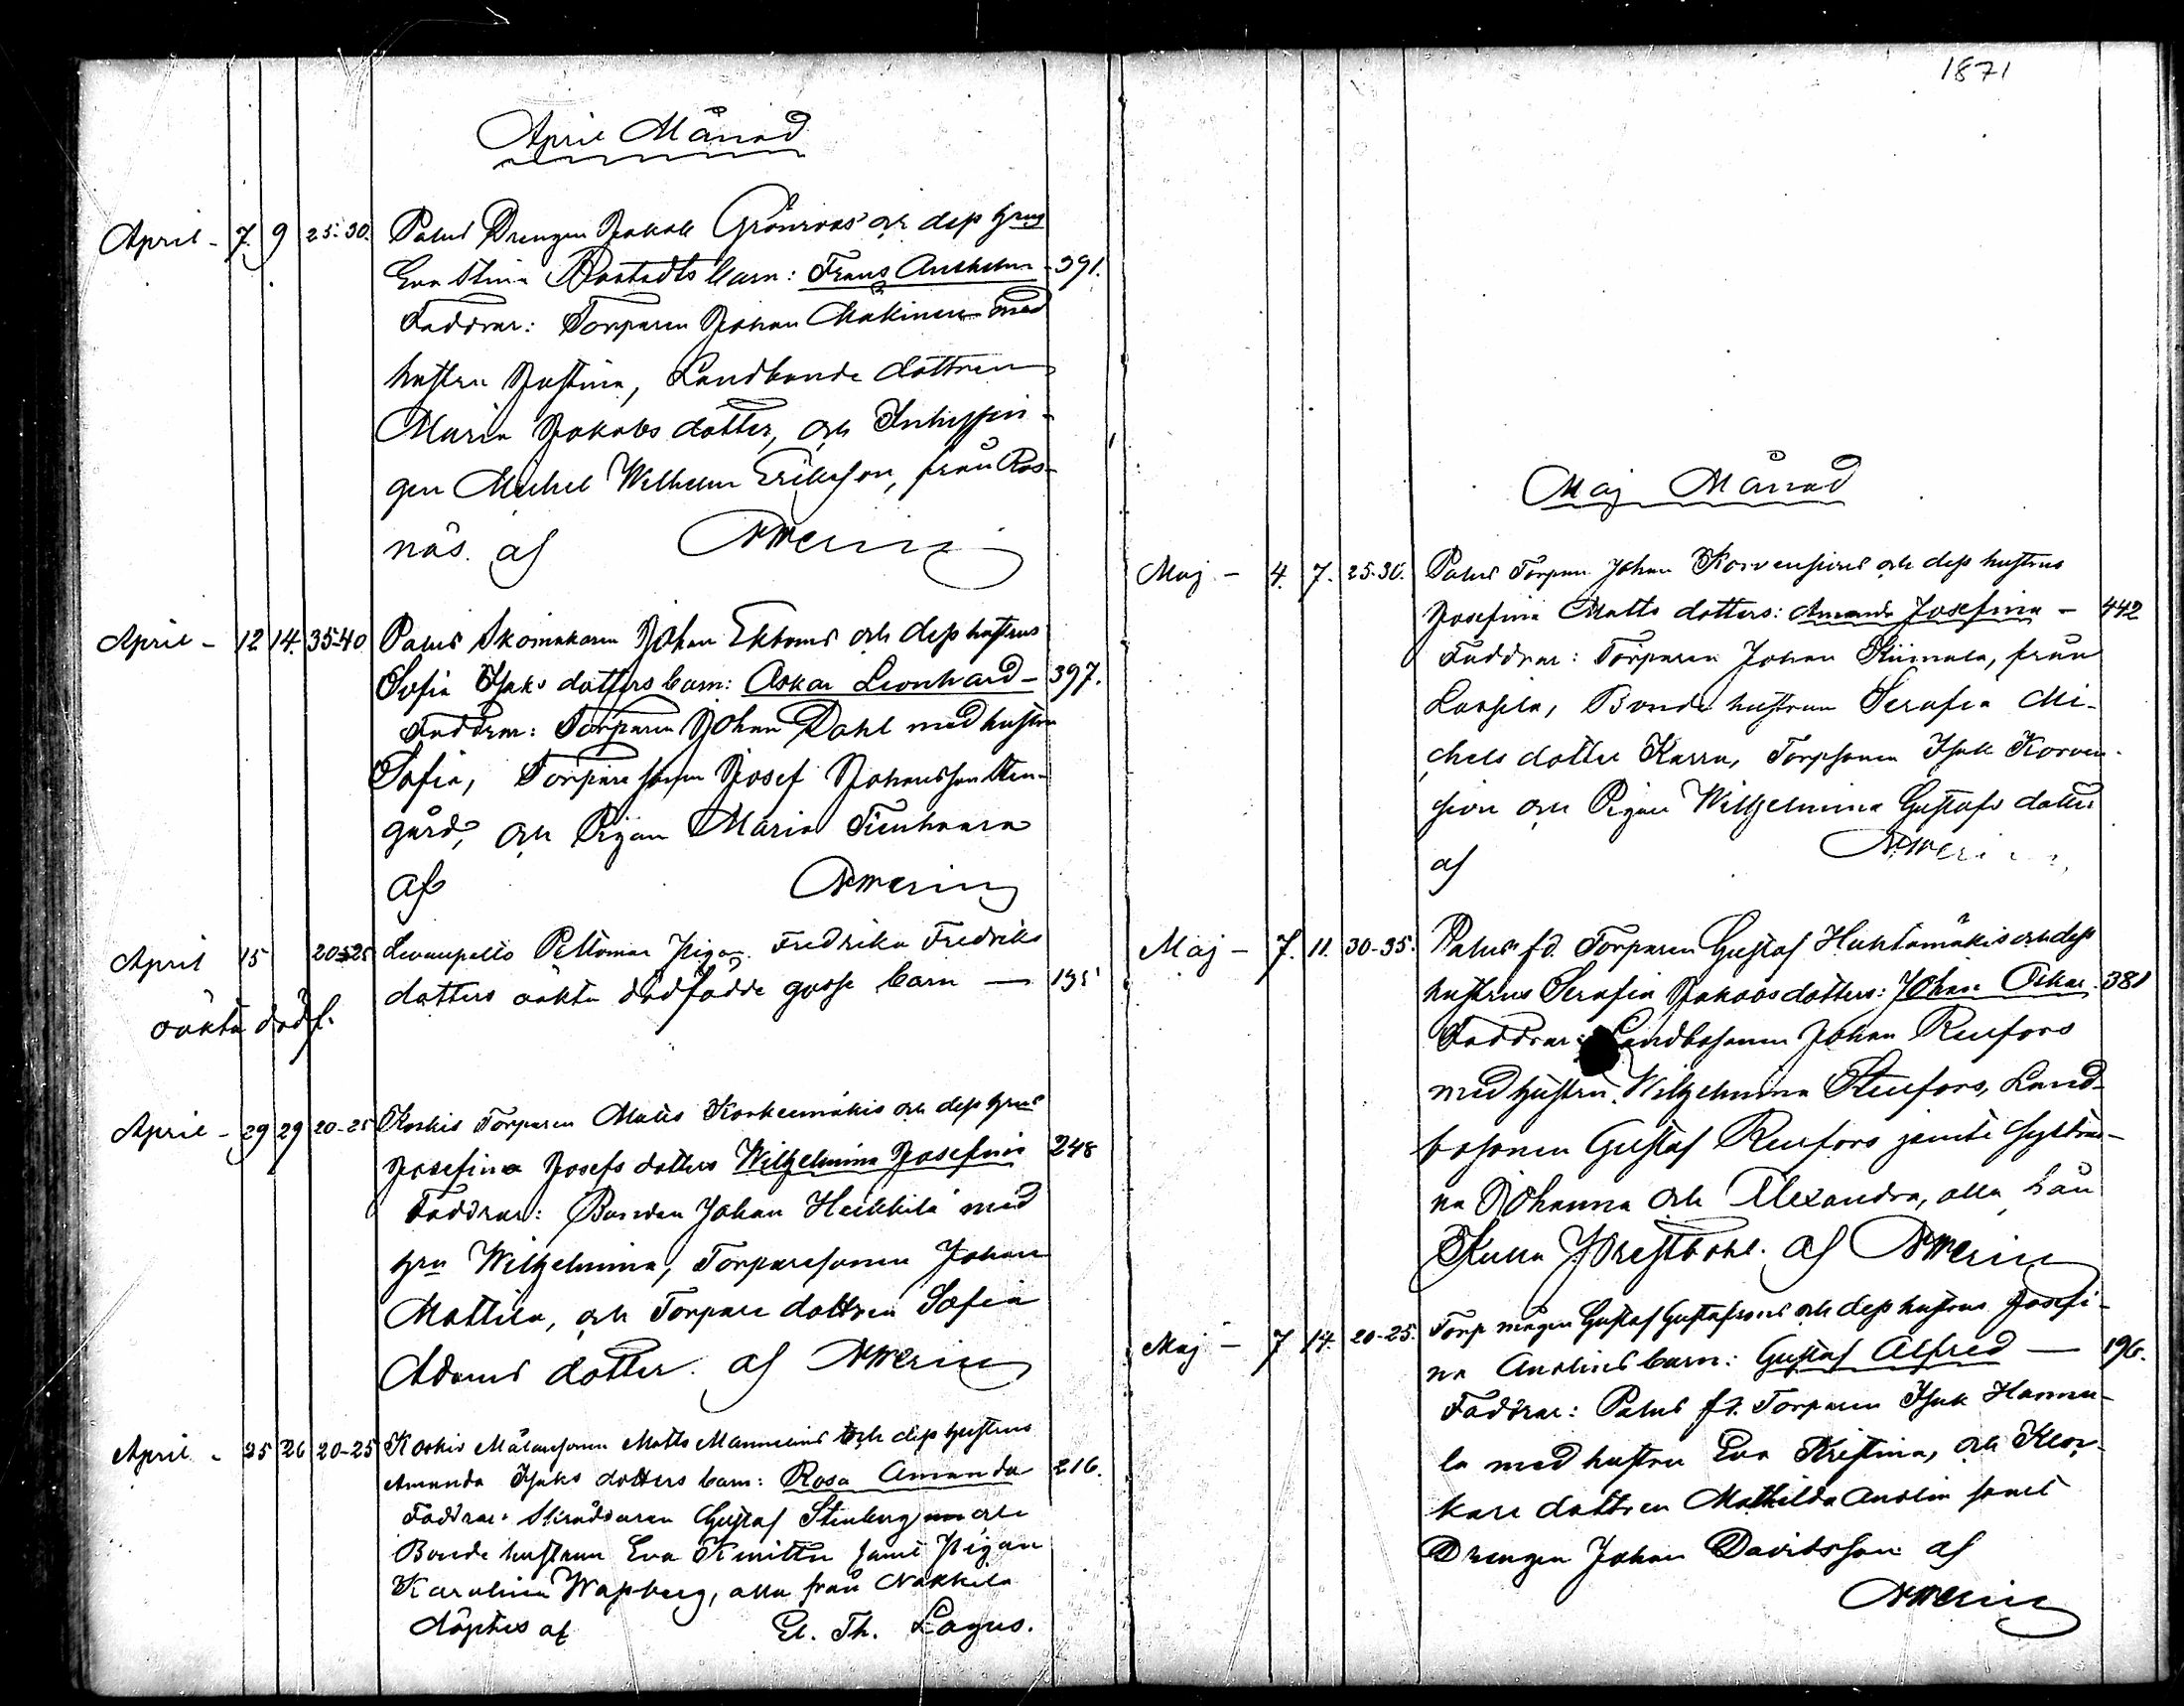 April Månad
April - 7. 9 25-30. Palus Drengen Jakob Grönroos och dess hrus
Eva Stina Bostedts barn: Frans Anshelm - 391.
Faddrar: Torparen Johan Mäkinen med
hustru Justina, Landbonde dottren
Maria Jakobs dotter, och Inhysin-
gen Michel Wilhelm Eriksson, från Ros-
näs. af
April - 12 14. 35-40 Palus Skomakaren Johan Ekboms och dess hustrus
Sofia Isaks dotters barn: Oskar Leonhard - 397.
Faddrar: Torparen Johan Dahl med hustru
Sofia, Torpare sonen Josef Johansson Sten-
gård, och Pigan Maria Tienhaara
af
April 15 20-25 Levanpelto Peltomaa pigan Fredrika Fredriks
dotters oäkta dödfödde gosse barn — 195
oäkta dödf.
April - 29 29 20-25 Koskis Torparen Matts Korkeemäkis och dess hrus
Josefina Josefs dotters Wilhelmina Josefina 248
Faddrar: Bonden Johan Heikkilä med
hru Wilhelmina, Torparesonen Johan
Mattila, och Torpare dottren Sofia
Adams dotter. af
April - 25 26 20-25 Koskis Målaresonen Matts Mannelins och dess hustrus
Amanda Isaks dotters barn: Rosa Amanda 216.
Faddrar: Skräddaren Gustaf Stenberg och
Bonde hustrun Eva samt Pigan
Karolina Wassberg, alla från Nakkila
döptes af El. Th. Lagus.
1871
Maj Månad
Maj - 4. 7. 25-30. Palus Torparen Johan Korvensivus och dess hustrus
Josefina Matts dotters: Amanda Josefina - 442
Faddrar: Torparen Johan Kiimala, från
Lassila, Bonde hustrun Serafia Mi-
chels dotter Karra, Torpsonen Isak Korven-
sivu och Pigan Wilhelmina Gustafs dotter
af
Maj - 7. 11. 30-35. Palus fd. Torparen Gustaf Huhtamäkis och dess
hustrus Serafia Jakobs dotters: Johan Oskar. 381
Faddrar: Landbosonen Johan Renfors
med hustru Wilhelmina Renfors, Land-
bosonen Gustaf Renfors jemte systrar-
na Johanna och Alexandra, alla från
Kulla Prestbohl. af
Maj - 7 14. 20-25. Torp mågen Gustaf Gustafssons och dess hustrus Josefi-
na Anolins barn: Gustaf Alfred — 196.
Faddrar: Palus fd. Torparen Isak Hannu-
la med hustru Eva Kristina, och Kloc-
kare dottren Mathilda Anolin samt
Drengen Johan Davidsson af